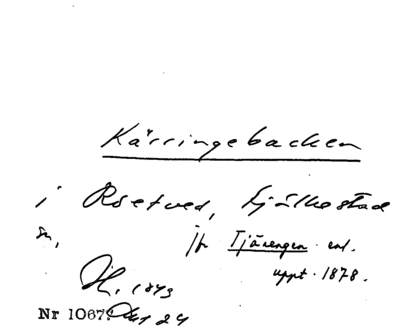 Kärringebacken
i Röetved, Fjälkestad
sn, jfr Tjärengen enl.
uppt. 1878.
H. 1843
Nr 1067. 24